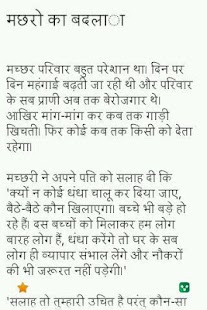 मछरो का बदलाा
मच्छर परिवार बहुत परेशान था। दिन पर
दिन महंगाई बढ़ती जा रही थी और परिवार
के सब प्राणी अब तक बेरोजगार थे।
आखिर मांग-मांग कर कब तक गाड़ी
खिचती। फिर कोई कब तक किसी को देता
रहेगा।
मच्छरी ने अपने पति को सलाह दी कि
'क्यों न कोई धंधा चालू कर दिया जाए,
बैठे-बैठे कौन खिलाएगा। बच्चे भी बड़े हो
रहे हैं। दस बच्चों को मिलाकर हम लोग
बारह लोग हैं, धंधा करेंगे तो घर के सब
लोग ही व्यापार संभाल लेंगे और नौकरों
की भी जरूरत नहीं पड़ेगी।'
'सलाह तो तुम्हारी उचित है परंतु कौन-सा